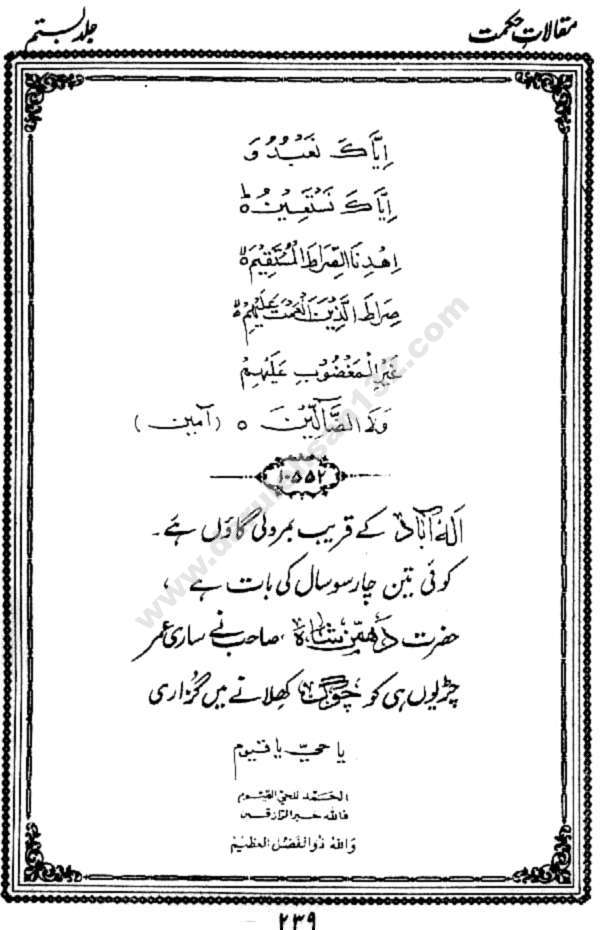 مقالاتِ حکمت
جلد بستم
اِيَّاكَ نَعْبُدُ وَ
اِيَّاكَ نَسْتَعِيْنُ ۵ؕ
اِهْدِنَا الصِّرَاطَ الْمُسْتَقِيْمَ ۵ۙ
صِرَاطَ الَّذِيْنَ اَنْعَمْتَ عَلَيْهِمْ ۵ۙ
غَيْرِ الْمَغْضُوْبِ عَلَيْهِمْ
وَلَا الضَّآلِّيْنَ ۵ (آمين)
۱۰۵۵۲
الہ آباد کے قریب بمرولی گاؤں ہے۔
کوئی تین چار سو سال کی بات ہے،
حضرت دھمّن شاہ، صاحب نے ساری عمر
چڑیوں ہی کو چوگ کھلانے میں گزاری
یا حيّ یا قیوم
الحَمد للحيّ القيّوم
فالله خير الرّازقين
وَاللهُ ذُو الفَضْلِ العظيْم
۲۳۹